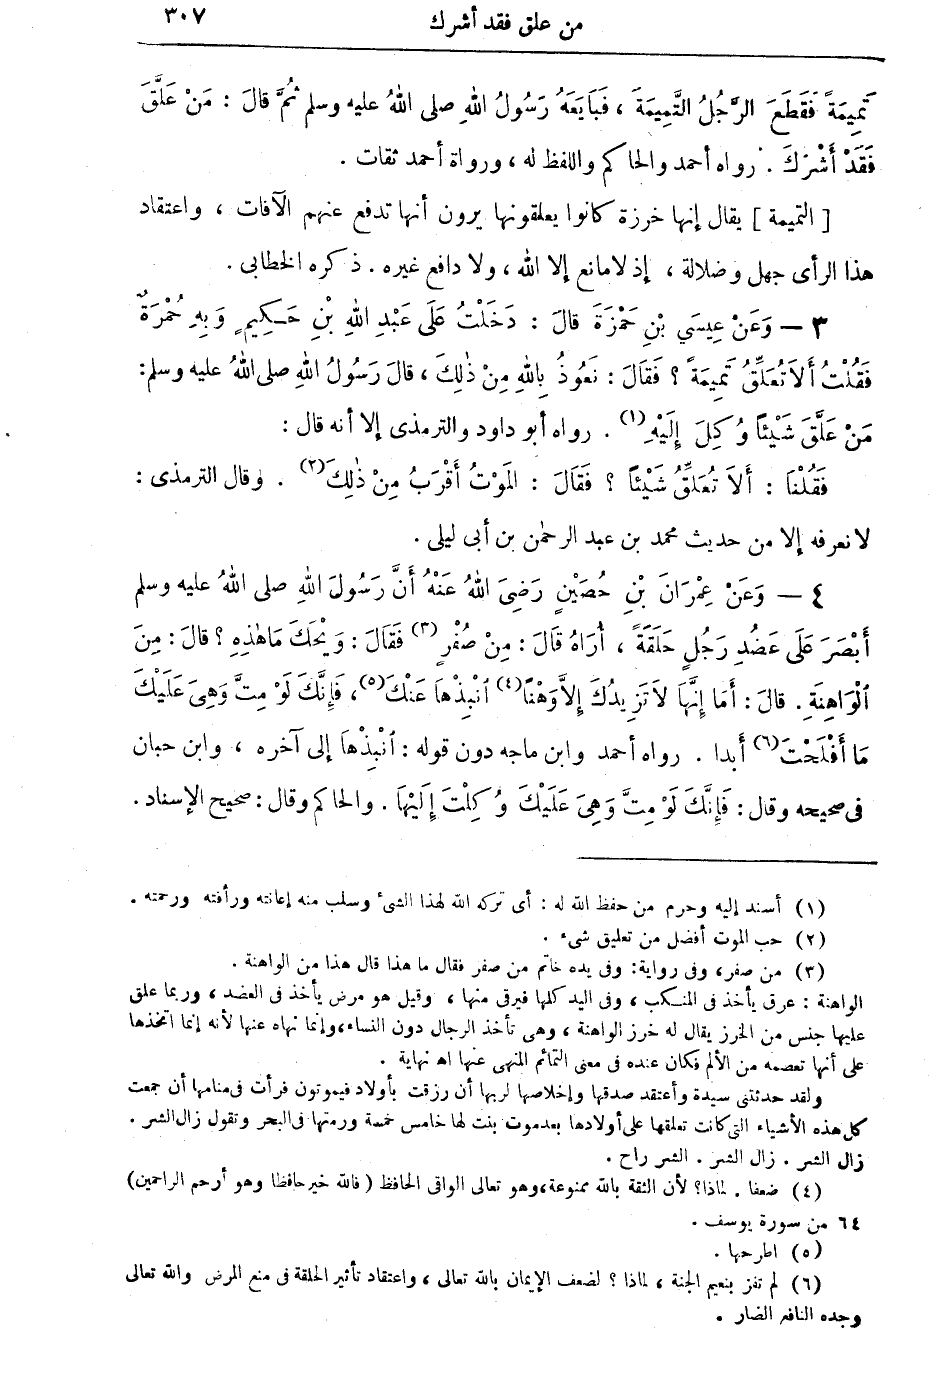 من علق فقد أشرك ٣٠٧
تَمِيمَةً فَقَطَعَ الرَّجُلُ التَّمِيمَةَ ، فَبَايَعَهُ رَسُولُ اللهِ صلى اللهُ عليه وسلم ثُمَّ قالَ : مَنْ عَلَّقَ
فَقَدْ أَشْرَكَ . رواه أحمد والحاكم واللفظ له ، ورواة أحمد ثقات .
[ التميمة ] يقال إنها خرزة كانوا يعلقونها يرون أنها تدفع عنهم الآفات ، واعتقاد
هذا الرأى جهل وضلالة ، إذ لا مانع إلا الله ، ولا دافع غيره . ذكره الخطابى .
٣ — وَعَنْ عِيسَي بْنِ حَمْزَةَ قالَ : دَخَلْتُ عَلَى عَبْدِ اللهِ بْنِ حَكِيمٍ وَبِهِ حُمْرَةٌ
فَقُلْتُ أَلاَ تُعَلِّقُ تَمِيمَةً ؟ فَقَالَ : نَعُوذُ بِاللهِ مِنْ ذٰلِكَ ، قالَ رَسُولُ اللهِ صلى اللهُ عليه وسلم :
مَنْ عَلَّقَ شَيْئًا وُكِلَ إِلَيْهِ(١) . رواه أبو داود والترمذى إلا أنه قال :
فَقُلْنَا : أَلاَ تُعَلِّقُ شَيْئًا ؟ فَقَالَ : المَوْتُ أَقْرَبُ مِنْ ذٰلِكَ(٢) . وقال الترمذى :
لا نعرفه إلا من حديث محمد بن عبد الرحمٰن بن أبى ليلى .
٤ — وَعَنْ عِمْرَانَ بْنِ حُصَيْنٍ رَضِيَ اللهُ عَنْهُ أَنَّ رَسُولَ اللهِ صلى اللهُ عليه وسلم
أَبْصَرَ عَلَى عَضُدِ رَجُلٍ حَلَقَةً ، أُرَاهُ قَالَ : مِنْ صُفْرٍ(٣) فَقَالَ : وَيْحَكَ مَا هٰذِهِ ؟ قالَ : مِنَ
الْوَاهِنَةِ . قالَ : أَمَا إِنَّهَا لاَ تَزِيدُكَ إِلاَّ وَهْنًا(٤) انْبِذْهَا عَنْكَ(٥) ، فَإِنَّكَ لَوْ مِتَّ وَهِيَ عَلَيْكَ
مَا أَفْلَحْتَ(٦) أَبدا . رواه أحمد وابن ماجه دون قوله : انْبِذْهَا إلى آخره ، وابن حبان
فى صحيحه وقال : فَإِنَّكَ لَوْ مِتَّ وَهِيَ عَلَيْكَ وُكِلْتَ إِلَيْهَا . والحاكم وقال : صحيح الإسناد .
(١) أسند إليه وحرم من حفظ الله له : أى تركه الله لهذا الشىء وسلب منه إعانته ورأفته ورحمته .
(٢) حب الموت أفضل من تعليق شىء .
(٣) من صفر، وفى رواية: وفى يده خاتم من صفر فقال ما هذا قال هذا من الواهنة .
الواهنة : عرق يأخذ فى المنكب ، وفى اليد كلها فيرقى منها ، وقيل هو مرض يأخذ فى العضد ، وربما علق
عليها جنس من الخرز يقال له خرز الواهنة ، وهى تأخذ الرجال دون النساء، وإنما نهاه عنها لأنه إنما اتخذها
على أنها تعصمه من الألم فكان عنده فى معنى التمائم المنهى عنها اه نهاية .
ولقد حدثتنى سيدة وأعتقد صدقها وإخلاصها لربها أن رزقت بأولاد فيموتون فرأت فى منامها أن جمعت
كل هذه الأشياء التى كانت تعلقها على أولادها بعد موت بنت لها خامس خمسة ورمتها فى البحر وتقول زال الشر .
زال الشر . زال الشر . الشر راح .
(٤) ضعفا . لماذا؟ لأن الثقة بالله ممنوعة، وهو تعالى الواقى الحافظ ( فالله خير حافظا وهو أرحم الراحمين)
٦٤ من سورة يوسف .
(٥) اطرحها .
(٦) لم تفز بنعيم الجنة ، لماذا ؟ لضعف الإيمان بالله تعالى ، واعتقاد تأثير الحلقة فى منع المرض والله تعالى
وحده النافع الضار .